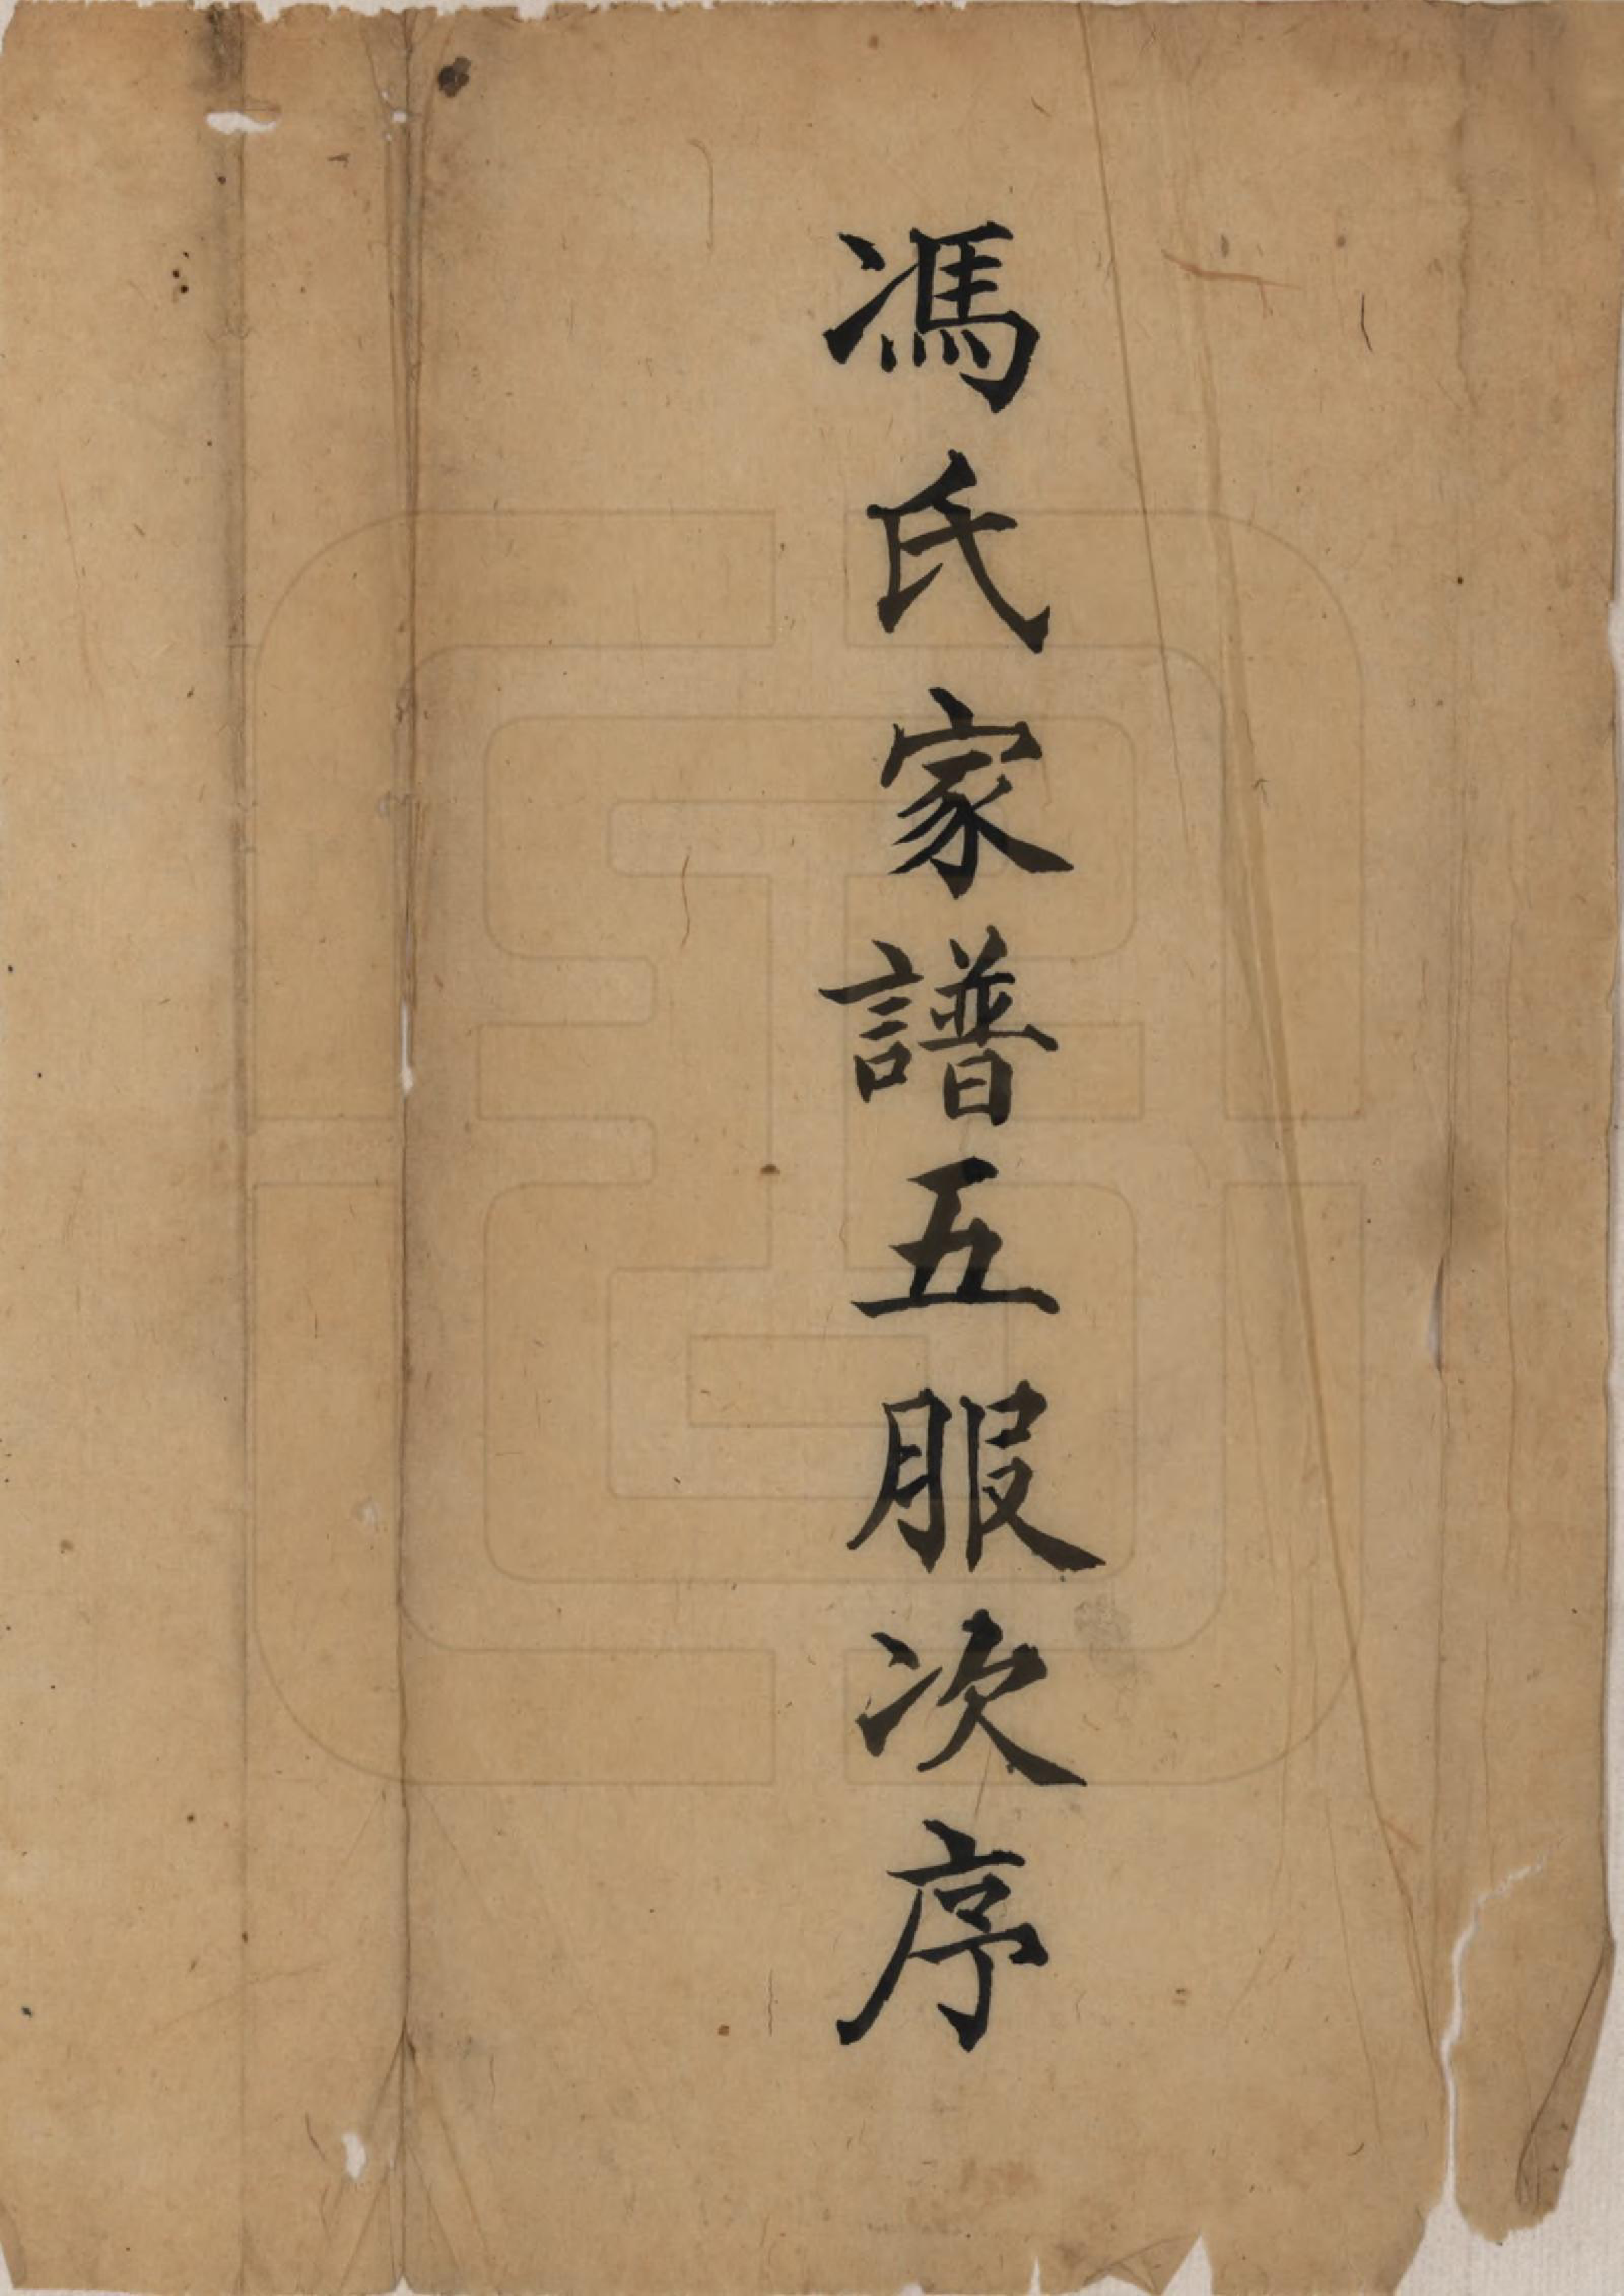 馮氏家譜五服次序